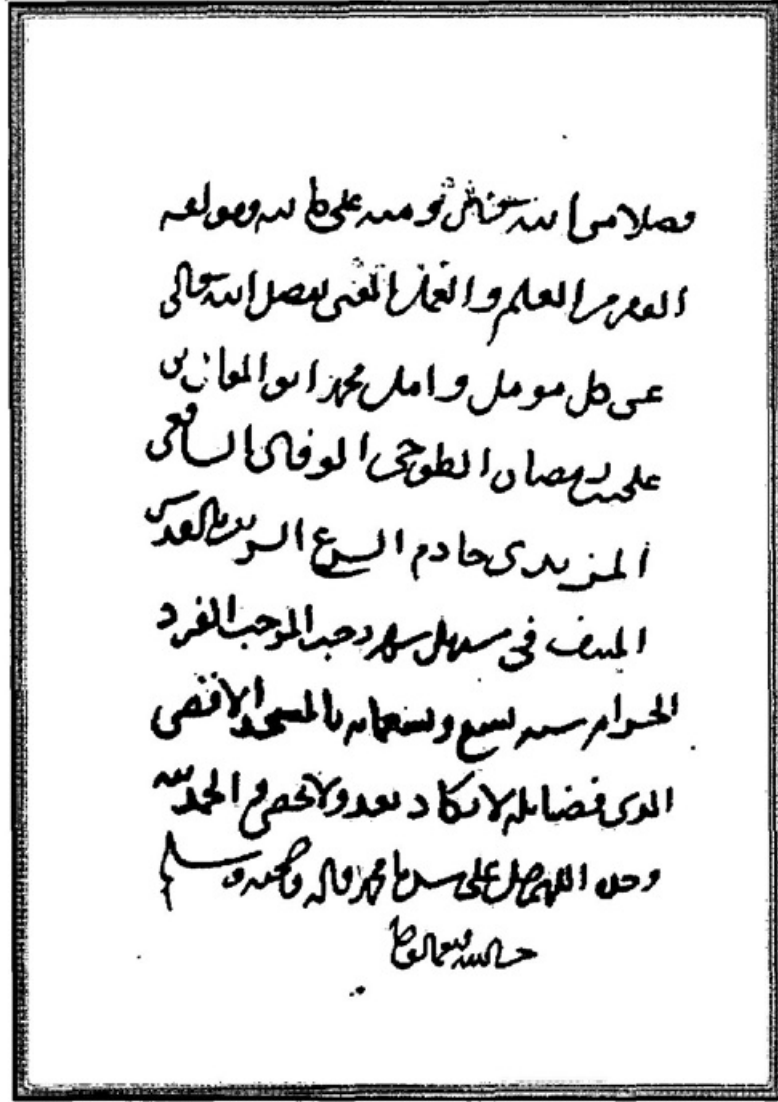 فضلا من الله تعالى ومنه على كاتبه ومؤلفه
الفقير من العلم والعمل الغني بفضل الله تعالى
عن كل مومل وامل محمد ابو الفتح بن
علي الطوخي الوفائي الشافعي
المزيدي خادم الشرع الشريف بالقدس
المنيف في مستهل شهر رجب الموجب الفرد
الحرام سنه تسع وتسعمايه بالمسجد الاقصى
الذي فضايله لا تكاد تعد ولا تحصى والحمد لله
وحده اللهم صل على سيدنا محمد واله وصحبه وسلم
حسبنا الله ونعم الوكيل